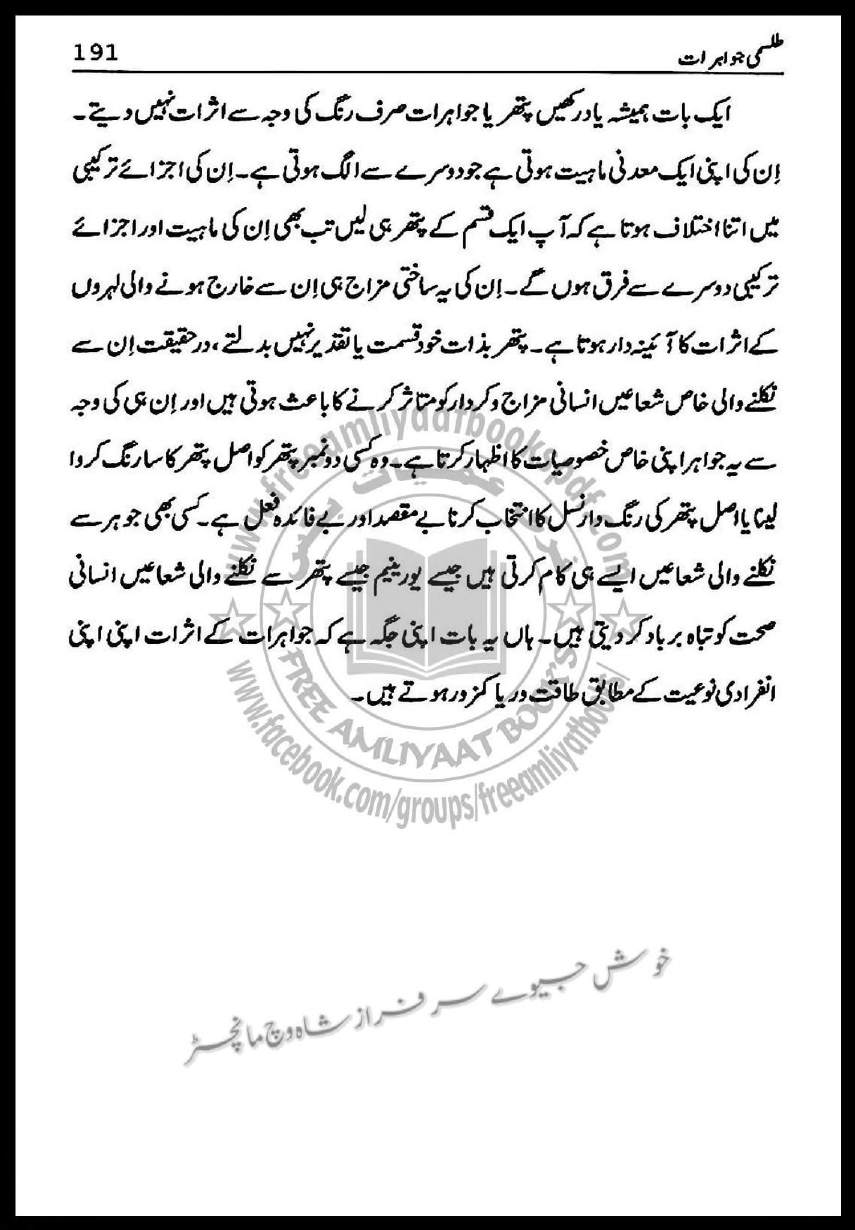 طلسمی جواہرات
191
ایک بات ہمیشہ یاد رکھیں پتھر یا جواہرات صرف رنگ کی وجہ سے اثرات نہیں دیتے۔
اِن کی اپنی ایک معدنی ماہیت ہوتی ہے جو دوسرے سے الگ ہوتی ہے۔ اِن کی اجزائے ترکیبی
میں اتنا اختلاف ہوتا ہے کہ آپ ایک قسم کے پتھر ہی لیں تب بھی اِن کی ماہیت اور اجزائے
ترکیبی دوسرے سے فرق ہوں گے۔ اِن کی یہ ساختی مزاج ہی اِن سے خارج ہونے والی لہروں
کے اثرات کا آئینہ دار ہوتا ہے۔ پتھر بذات خود قسمت یا تقدیر نہیں بدلتے، درحقیقت اِن سے
نکلنے والی خاص شعاعیں انسانی مزاج و کردار کو متاثر کرنے کا باعث ہوتی ہیں اور اِن ہی کی وجہ
سے یہ جواہر اپنی خاص خصوصیات کا اظہار کرتا ہے۔ وہ کسی دو نمبر پتھر کو اصل پتھر کا سا رنگ کروا
لینا یا اصل پتھر کی رنگ دار نسل کا انتخاب کرنا بے مقصد اور بے فائدہ فعل ہے۔ کسی بھی جوہر سے
نکلنے والی شعاعیں ایسے ہی کام کرتی ہیں جیسے یورینیم جیسے پتھر سے نکلنے والی شعاعیں انسانی
صحت کو تباہ برباد کر دیتی ہیں۔ ہاں یہ بات اپنی جگہ ہے کہ جواہرات کے اثرات اپنی اپنی
انفرادی نوعیت کے مطابق طاقت ور یا کمزور ہوتے ہیں۔
www.freeamliyaatbookspdf.com
FREE AMLIYAAT BOOK'S
www.facebook.com/groups/freeamliyatbooks/
خوش جیوے سرفراز شاہ وچ مانچسٹر